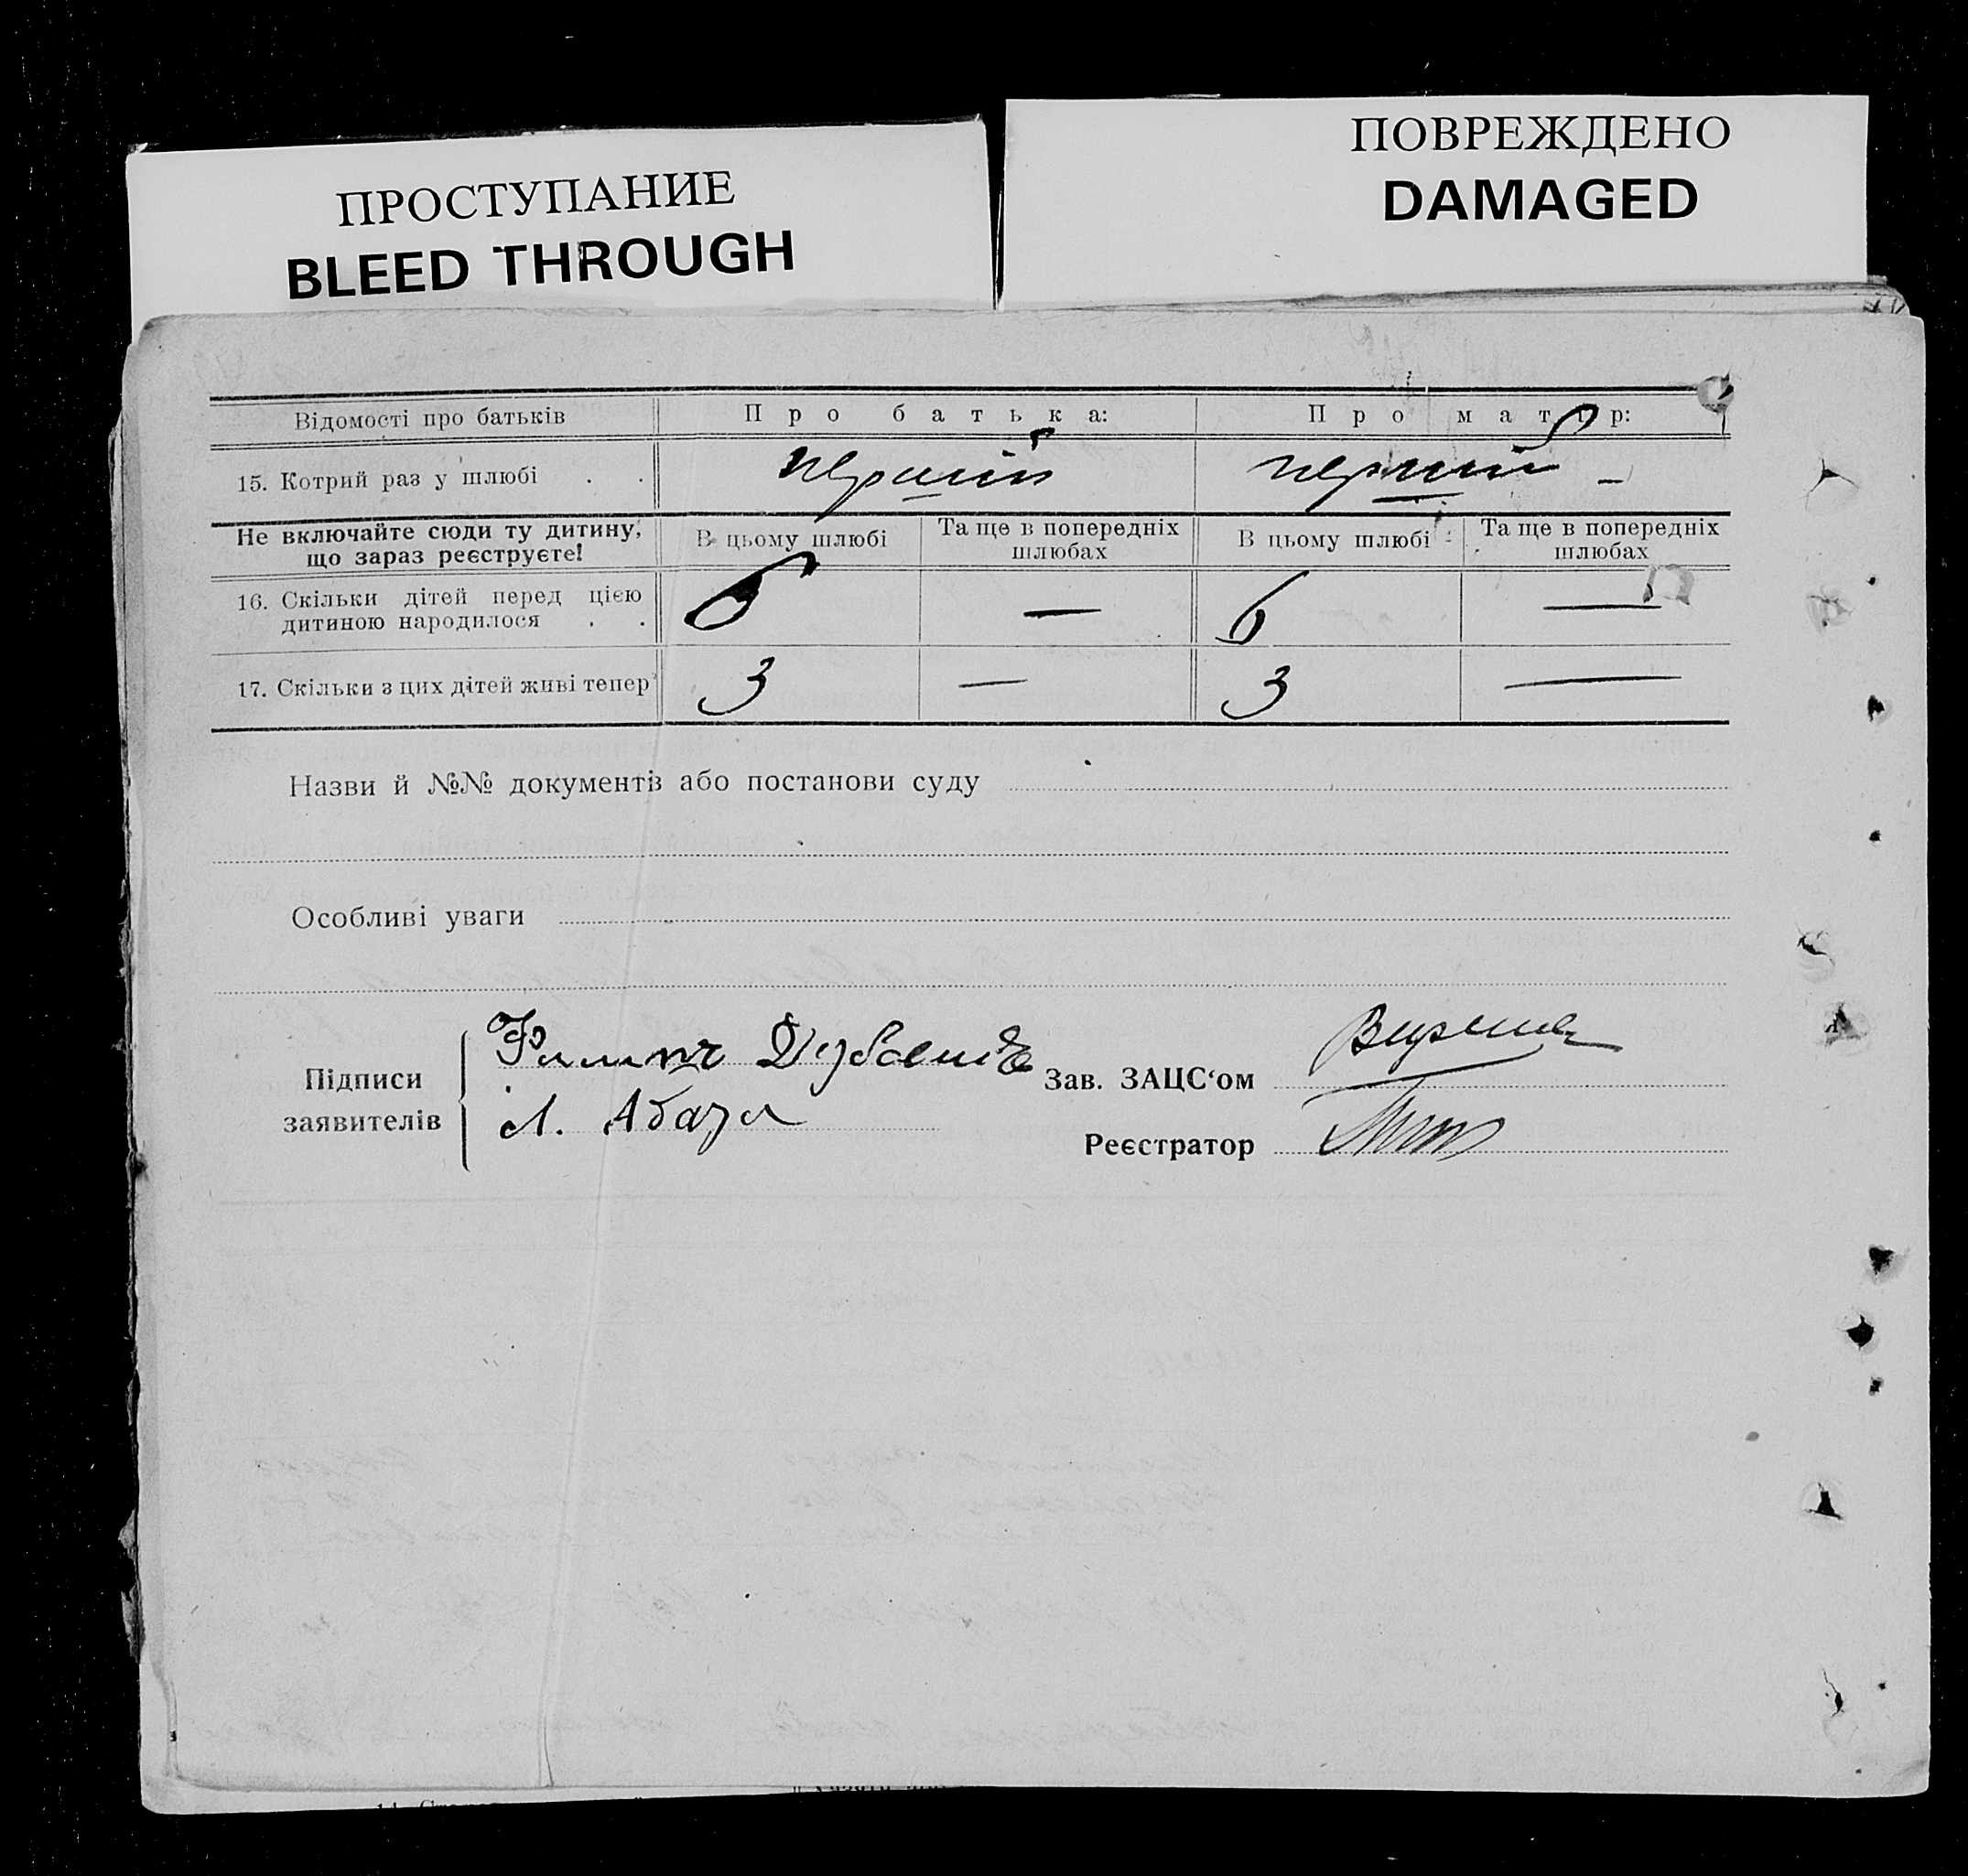 ПРОСТУПАНИЕ
BLEED THROUGH
ПОВРЕЖДЕНО
DAMAGED
Відомості про батьків Про батька: Про матір:
15. Котрий раз у шлюбі . . перший перший –
Не включайте сюди ту дитину, що зараз реєструєте! В цьому шлюбі Та ще в попередніх шлюбах В цьому шлюбі Та ще в попередніх шлюбах
16. Скільки дітей перед цією
дитиною народилося . . 6 — 6 —
17. Скільки з цих дітей живі тепер 3 — 3 —
Назви й №№ документів або постанови суду
Особливі уваги
Підписи
заявителів
Л. Абаза
Зав. ЗАЦС‘ом
Реєстратор